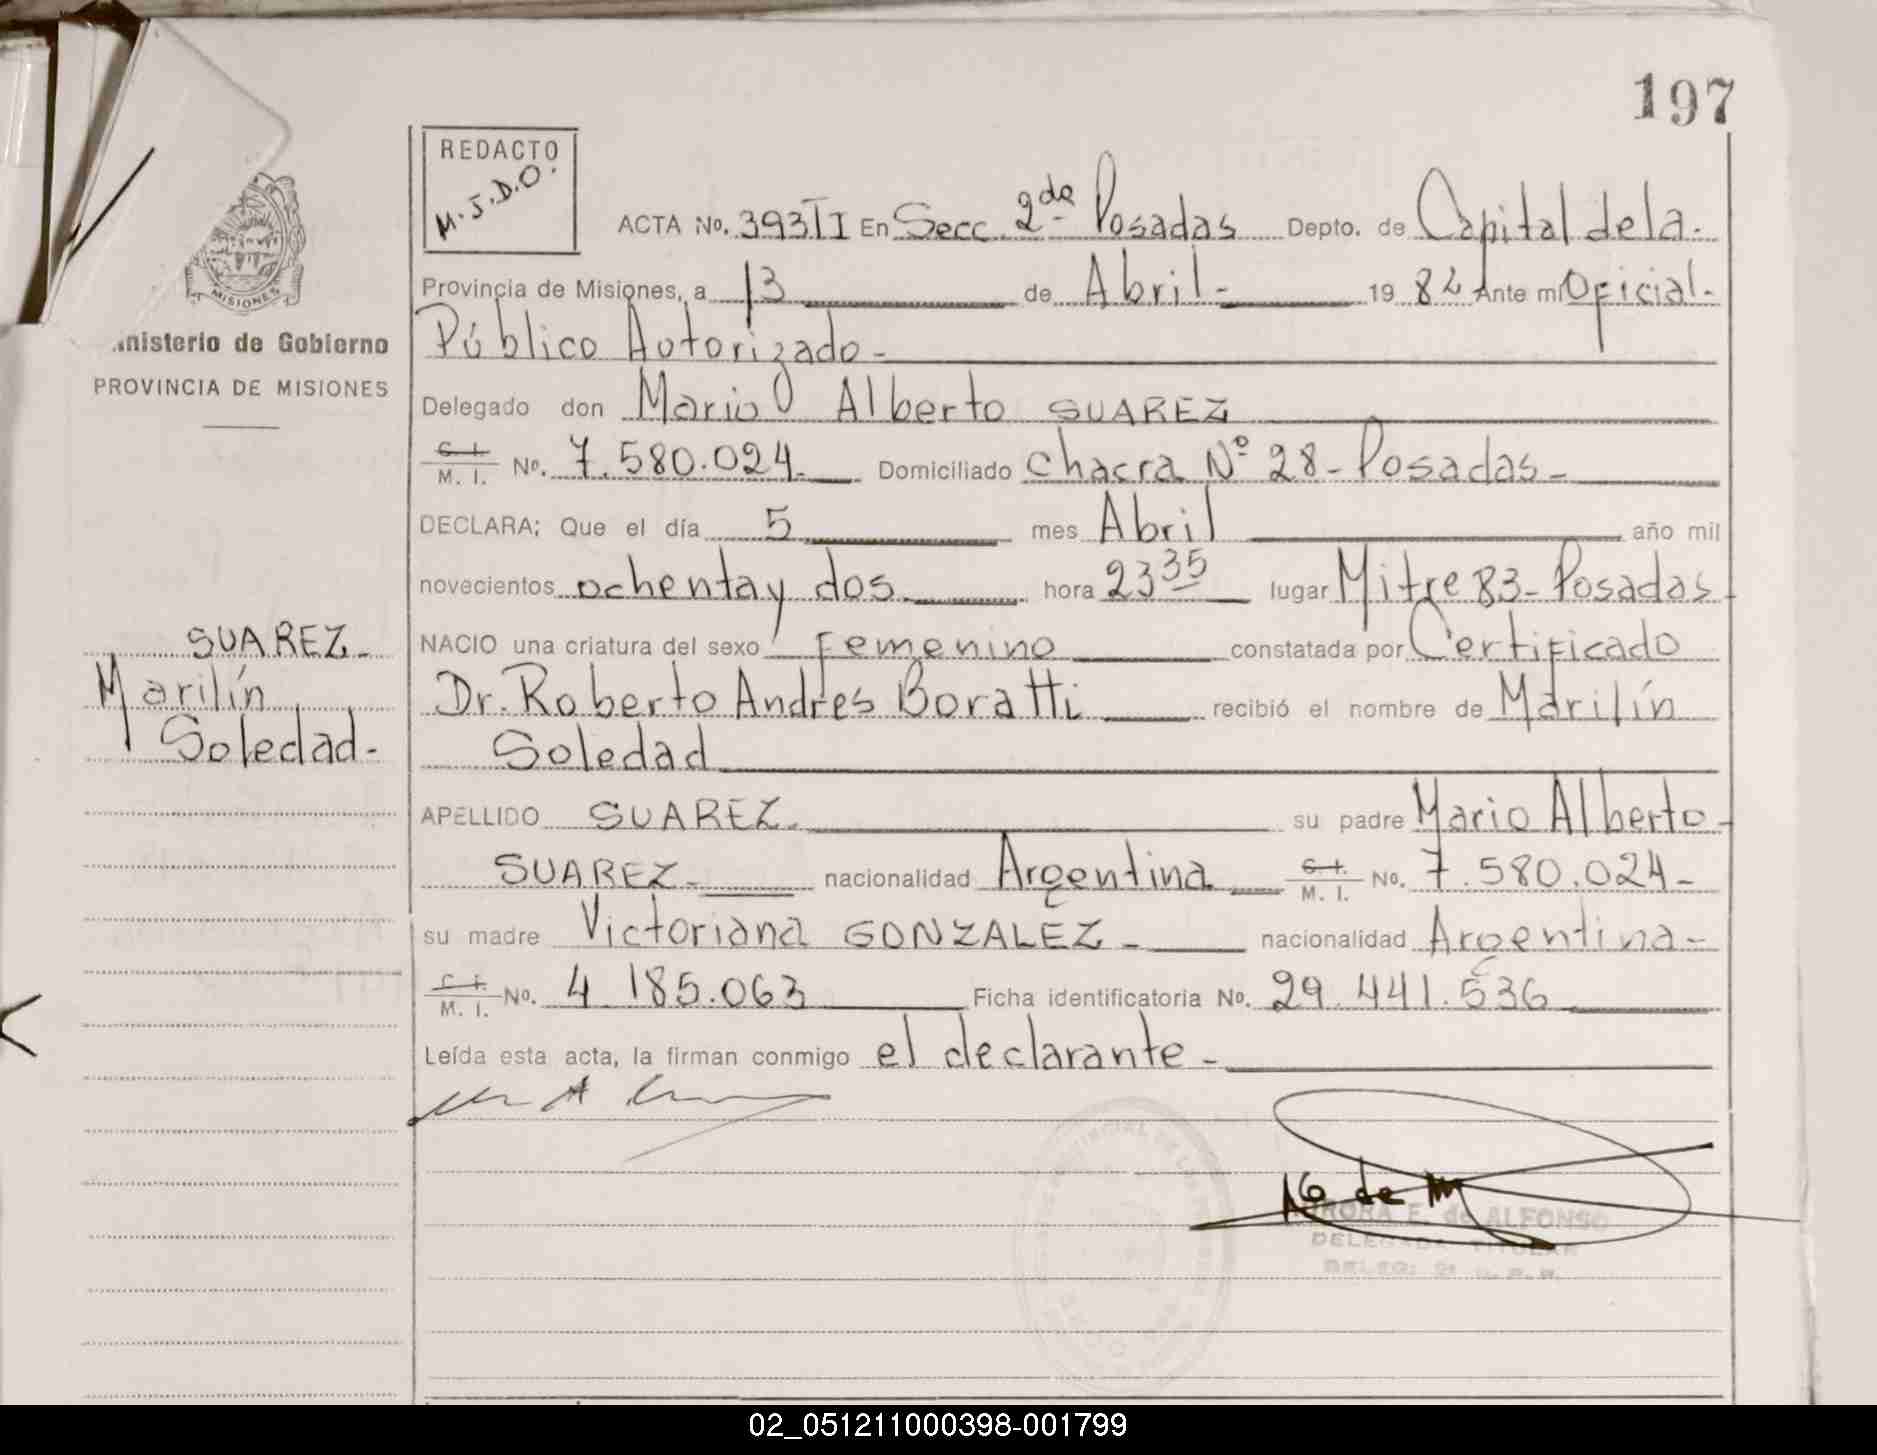 197
REDACTO
M.J.D.O.
ACTA No. 393 TI En Secc. 2da Posadas Depto. de Capital de la.
Provincia de Misiones, a 13 de Abril- 19 82 Ante mí Oficial.-
Público Autorizado-
MISIONES
nisterio de Gobierno
PROVINCIA DE MISIONES
Delegado don Mario Alberto SUAREZ
C. I.
M. I. No. 7.580.024.- Domiciliado chacra Nº 28- Posadas-
DECLARA; Que el día 5 mes Abril año mil
novecientos ochenta y dos hora 23 35 lugar Mitre 83- Posadas
SUAREZ-
Marilín
Soledad-
NACIO una criatura del sexo Femenino constatada por Certificado
Dr. Roberto Andres Boratti recibió el nombre de Marilín
Soledad
APELLIDO SUAREZ- su padre Mario Alberto
SUAREZ- nacionalidad Argentina C. I.
M. I. No. 7.580.024-
su madre Victoriana GONZALEZ- nacionalidad Argentina-
C. I.
M. I. No. 4 185.063 Ficha identificatoria No. 29.441.536
Leída esta acta, la firman conmigo el declarante-
AURORA E. de ALFONSO
DELEGADA TITULAR
02_051211000398-001799